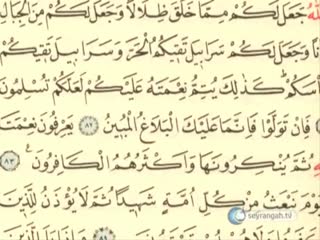 الله جَعَلَ لَكُم مِّمَّا خَلَقَ ظِلَالًا وَجَعَلَ لَكُم مِّنَ الْجِبَالِ
نًا وَجَعَلَ لَكُمْ سَرَابِيلَ تَقِيكُمُ الْحَرَّ وَسَرَابِيلَ تَقِيكُم
أْسَكُمْ كَذَٰلِكَ يُتِمُّ نِعْمَتَهُ عَلَيْكُمْ لَعَلَّكُمْ تُسْلِمُونَ
فَإِن تَوَلَّوْا فَإِنَّمَا عَلَيْكَ الْبَلَاغُ الْمُبِينُ ٨٢ يَعْرِفُونَ نِعْمَتَ
ثُمَّ يُنكِرُونَهَا وَأَكْثَرُهُمُ الْكَافِرُونَ ٨٣
وْمَ نَبْعَثُ مِن كُلِّ أُمَّةٍ شَهِيدًا ثُمَّ لَا يُؤْذَنُ لِلَّذِينَ
seyrangah.tv